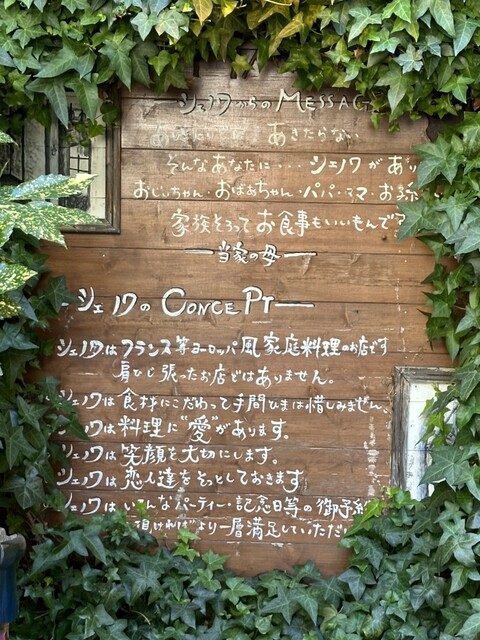 シェノワからのMESSAG
あきたらない
そんなあなたに・・・シェノワがあり
おじいちゃん・おばあちゃん・パパ・ママ・お
家族そろってお食事もいいもんで
当家の母
シェノワのCONCEPT
シェノワはフランス等ヨーロッパ風家庭料理のお店です
肩ひじ張ったお店ではありません。
シェノワは食材にこだわって手間ひまは惜しみません、
ワは料理に"愛"があります。
シェノワは笑顔を大切にします。
シェノワは恋人達をそっとしておきます
シェノワはいろんなパーティー・記念日等の御予約
頂ければより一層満足していただ